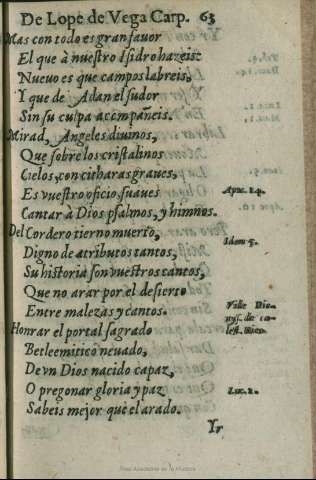 De Lope de Vega Carp. 63
Mas con todo es gran fauor
El que à nuestro Isidro hazeis:
Nueuo es que campos labreis,
Y que de Adan el sudor
Sin su culpa accmpañeis.
Mirad, Angeles diuinos,
Que sobre los cristalinos
Cielos, con citharas graues,
Es vuestro oficio, suaues
Apoc. 14.
Cantar à Dios psalmos, y himnos.
Del Cordero tierno muerto,
Idem 5.
Digno de atributos tantos,
Su historia son vuestros cantos,
Que no arar por el desierto
Entre malezas y cantos.
Vide Dio-
nys. de cæ-
Honrar el portal sagrado
lest. Hier.
Betleemitico neuado,
De vn Dios nacido capaz,
O pregonar gloria y paz
Luc. 2.
Sabeis mejor que el arado.
Yr